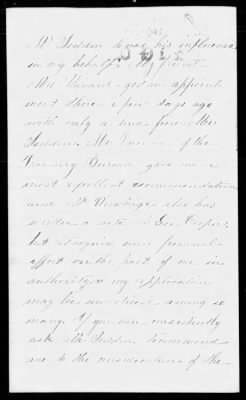 Mr Seddon to use his influence
in my behalf. My friend
Mrs got an appoint
ment there a few days ago
with only a line from Mr
Seddon. Mr of the
Treasury Bureau gave me a
most excellent recommendation
and Mr also has
written a note to Gen Cooper,
but it requires some personal
effort on the part of one in
authority, or my application
may be unnoticed among so
many. If you can consistently
ask Mr Seddon to recommend
me to the consideration of the